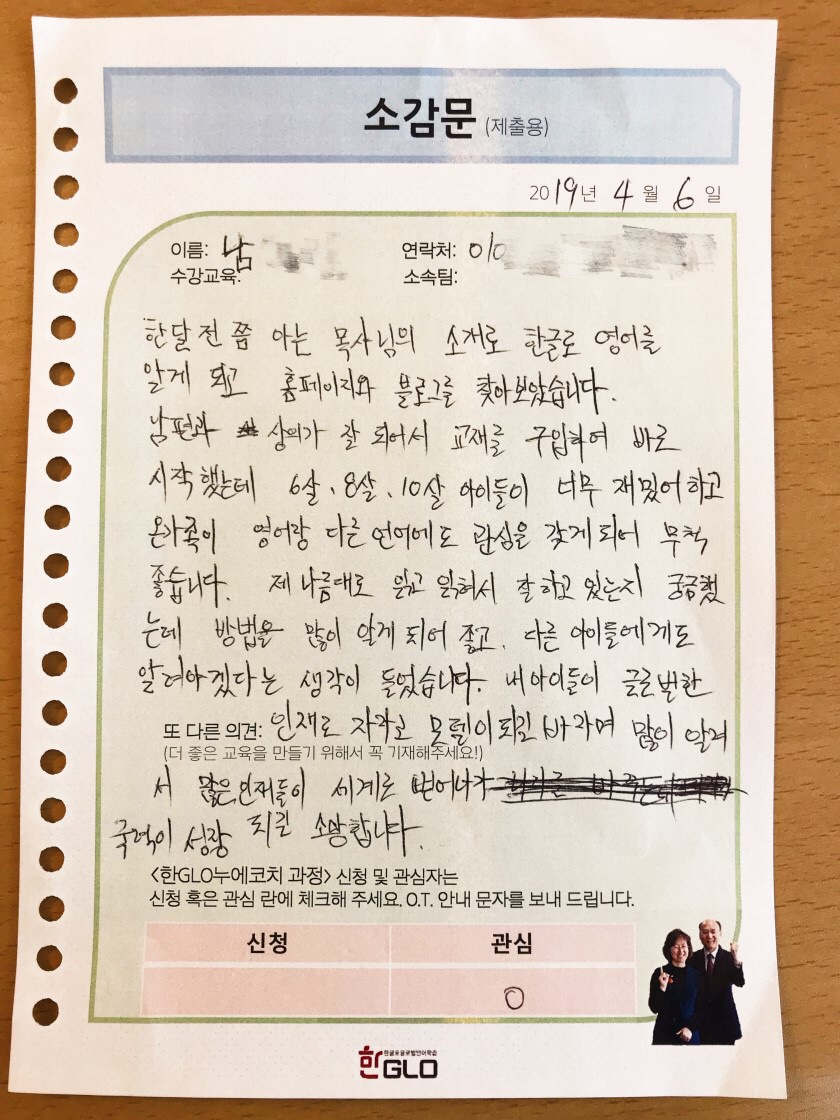 소감문 (제출용)
2019년 4월 6일
이름: 남 연락처: 010
수강교육: 소속팀:
한달 전 쯤 아는 목사님의 소개로 한글로 영어를
알게 되고 홈페이지와 블로그를 찾아보았습니다.
남편과 상의가 잘 되어서 교재를 구입하여 바로
시작했는데 6살, 8살, 10살 아이들이 너무 재밌어하고
온가족이 영어랑 다른언어에도 관심을 갖게되어 무척
좋습니다. 제 나름대로 읽고 읽혀서 잘하고 있는지 궁금했
는데 방법을 많이 알게 되어 좋고, 다른 아이들에게도
알려야겠다는 생각이 들었습니다. 내아이들이 글로벌한
또 다른 의견: 인재로 자라고 모델이되길 바라며 많이 알려
(더 좋은 교육을 만들기 위해서 꼭 기재해주세요!)
서 많은인재들이 세계로 뻗어나가
국력이 성장 되길 소망합니다.
<한GLO누에코치 과정> 신청 및 관심자는
신청 혹은 관심 란에 체크해 주세요. O.T. 안내 문자를 보내 드립니다.
신청 관심
O
한글로글로벌언어학습
한GLO